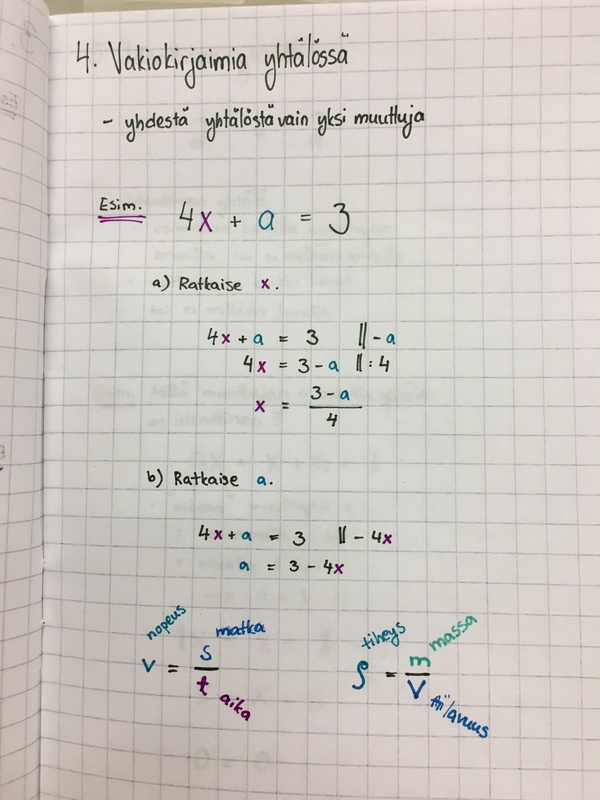 4. Vakiokirjaimia yhtälössä
- yhdestä yhtälöstä vain yksi muuttuja
Esim. 4x + a = 3
a) Ratkaise x.
4x + a = 3 || - a
4x = 3 - a || : 4
x = (3 - a)/4
b) Ratkaise a.
4x + a = 3 || - 4x
a = 3 - 4x
nopeus matka
v = s/t
aika
tiheys massa
ρ = m/V
tilavuus